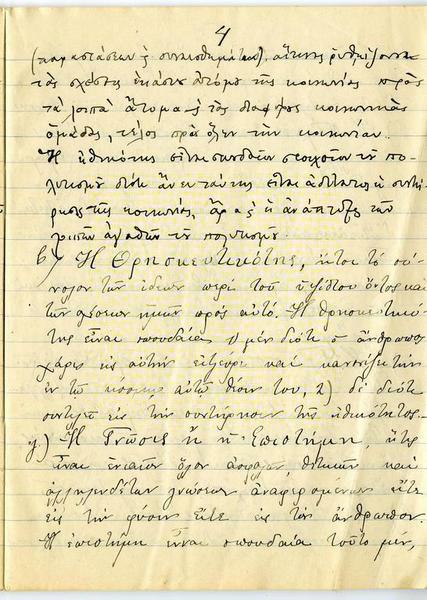 4
(παραστάσεων ἢ συναισθημάτων), αἵτινες ῥυθμίζουσι
τὰς σχέσεις ἑκάστου ἀτόμου τῆς κοινωνίας πρὸς
τὰ λοιπὰ ἄτομα ἢ τὰς διαφόρους κοινωνικὰς
ὁμάδας, τέλος πρὸς ὅλην τὴν κοινωνίαν.
Ἡ ἠθικότης εἶναι σπουδαῖον στοιχεῖον τοῦ πο-
λιτισμοῦ διότι ἄνευ ταύτης εἶναι ἀδύνατος ἡ συντή-
ρησις τῆς κοινωνίας, ἄρα ἡ ἀνάπτυξις τῶν
λοιπῶν ἀγαθῶν τοῦ πολιτισμοῦ.
β) Ἡ Θρησκευτικότης, ἤτοι τὸ σύ-
νολον τῶν ἰδεῶν περὶ τοῦ ὑψίστου ὄντος καὶ
τῶν σχέσεων ἡμῶν πρὸς αὐτό. Ἡ θρησκευτικό-
της εἶναι σπουδαία 1) μὲν διότι ὁ ἄνθρωπος
χάρις εἰς αὐτὴν καὶ τὴν
ἐν τῷ κόσμῳ αὐτῷ θέσιν του, 2) δὲ διότι
συντελεῖ εἰς τὴν συντήρησιν τῆς ἠθικότητος.
γ) Ἡ Γνῶσις ἢ ἡ Ἐπιστήμη, ἥτις
εἶναι ἑνιαῖον ὅλον ἀσφαλῶν, θετικῶν καὶ
ἀλληλενδέτων γνώσεων ἀναφερομένων εἴτε
εἰς τὴν φύσιν εἴτε εἰς τὸν ἄνθρωπον.
Ἡ ἐπιστήμη εἶναι σπουδαία τοῦτο μὲν,